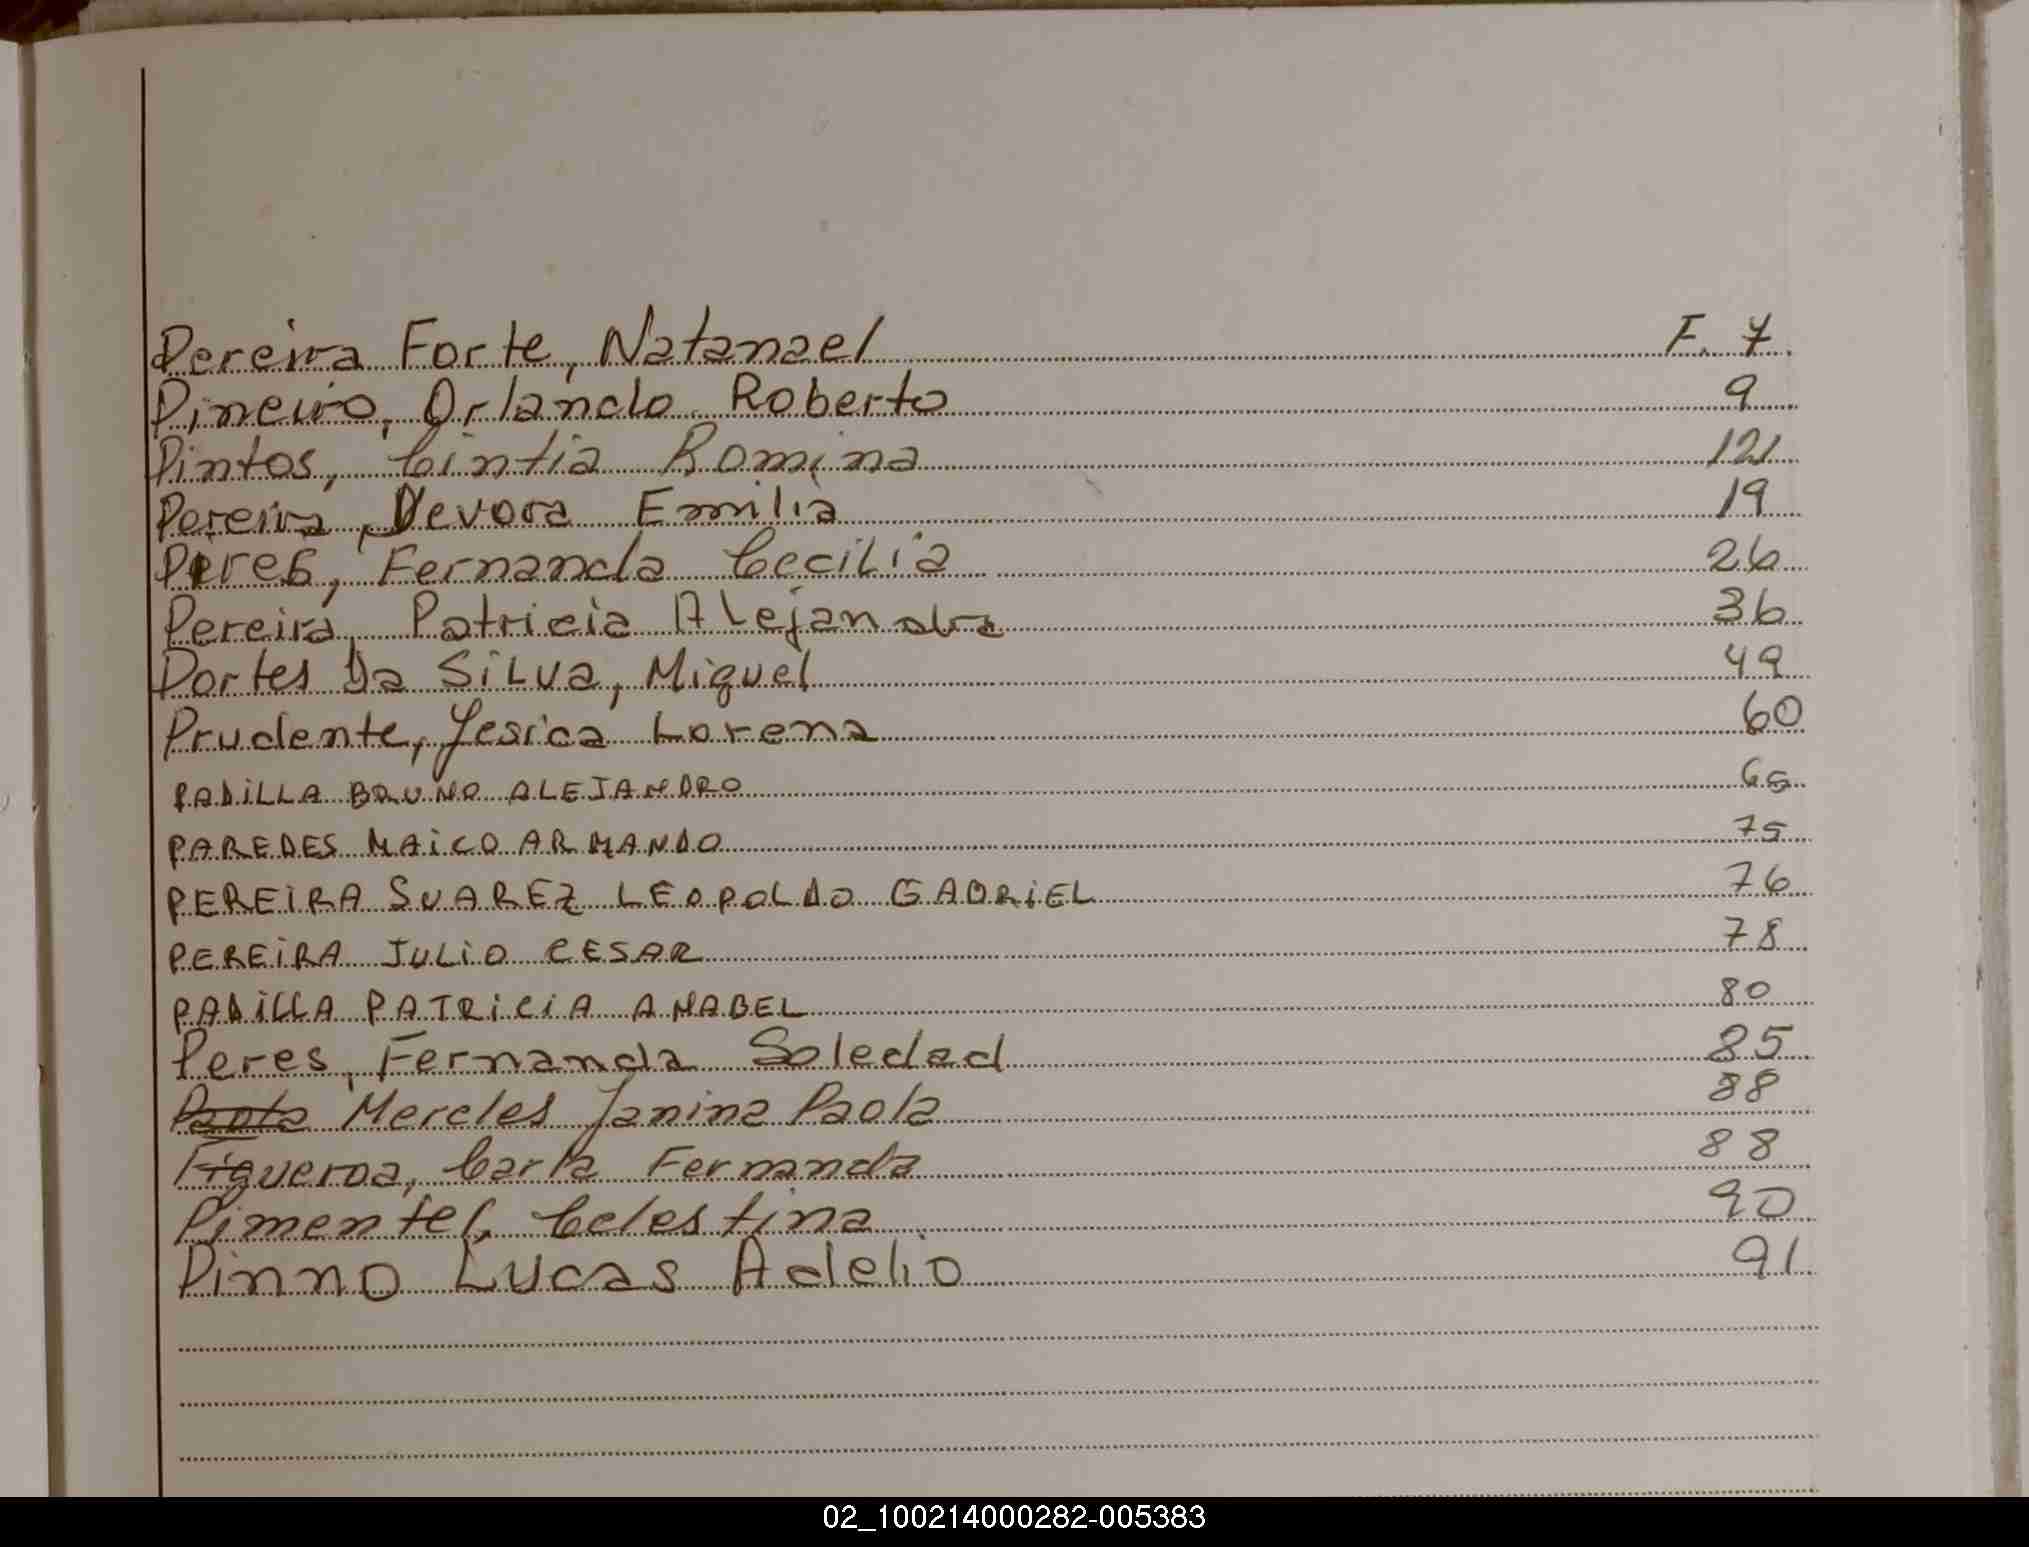 Pereira Forte, Natanael F. 7
Pineiro, Orlando Roberto 9
Pintos, Cintia Romina 121
Pereira, Devora Emilia 19
Peres, Fernanda Cecilia 26
Pereira, Patricia Alejandra 36
Portes Da Silva, Miguel 49
Prudente, Yesica Lorena 60
PADILLA BRUNO ALEJANDRO 65
PAREDES MAICO ARMANDO 75
PEREIRA SUAREZ LEOPOLDO GABRIEL 76
PEREIRA JULIO CESAR 78
PADILLA PATRICIA ANABEL 80
Peres, Fernanda Soledad 85
Paola Mereles Janina Paola 88
Figueroa, Carla Fernanda 88
Pimentel, Celestina 90
Pinno Lucas Adelio 91
02_100214000282-005383